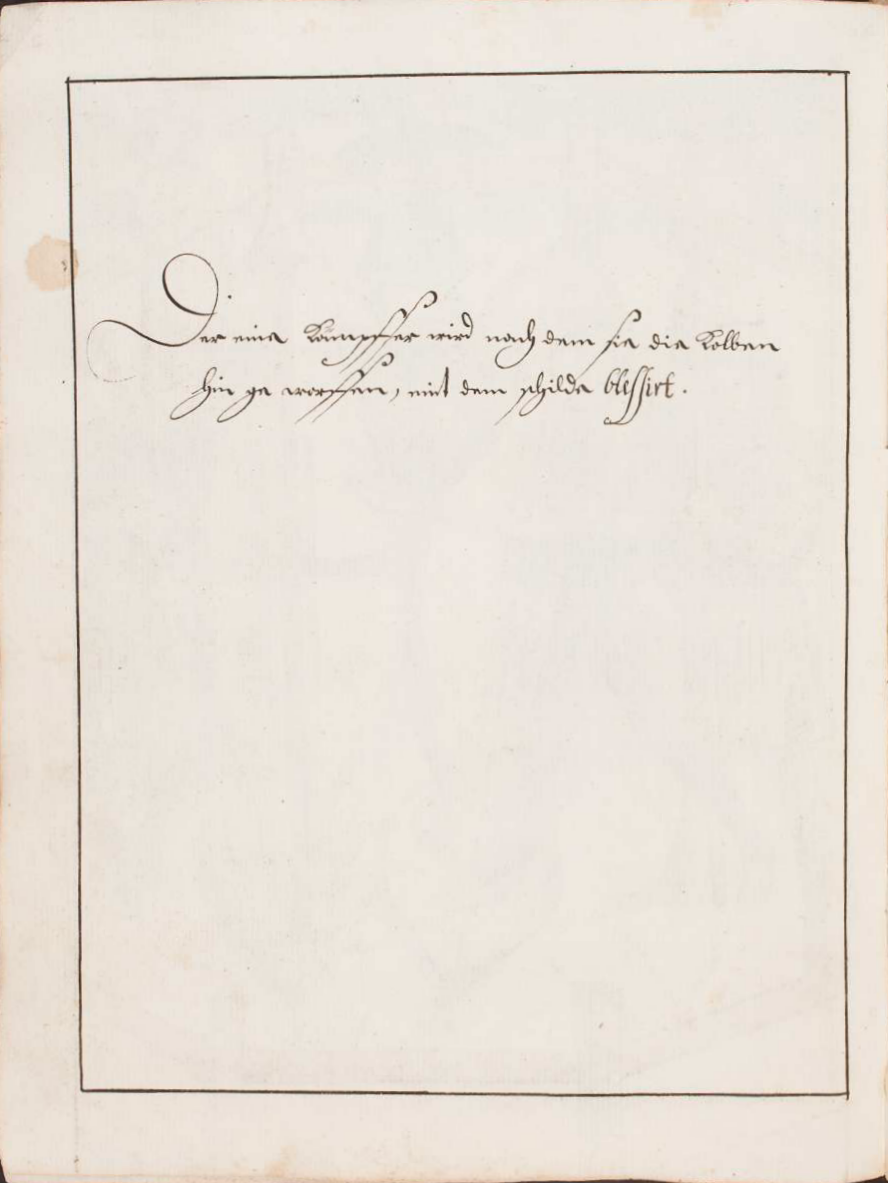 Der eine Kämpffer wird nach dem sie die Kolben
hin ge worffen, mit dem schilde blessirt.